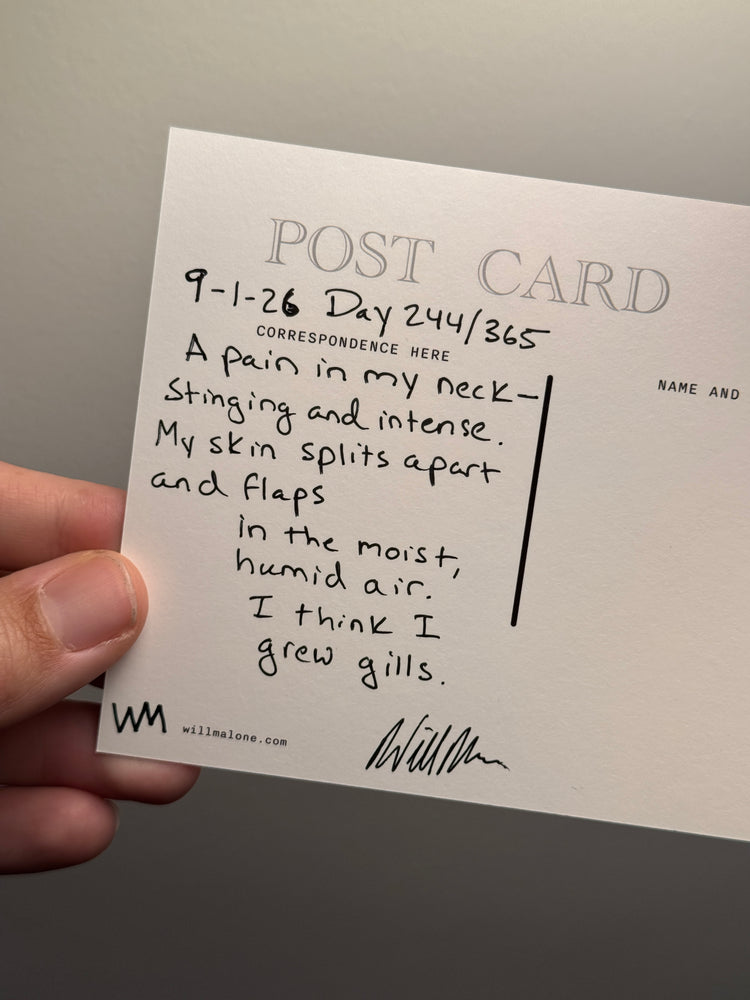 POST CARD
9-1-26 Day 244/365
CORRESPONDENCE HERE
A pain in my neck—
Stinging and intense.
My skin splits apart
and flaps
in the moist,
humid air.
I think I
grew gills.
NAME AND
WM willmalone.com